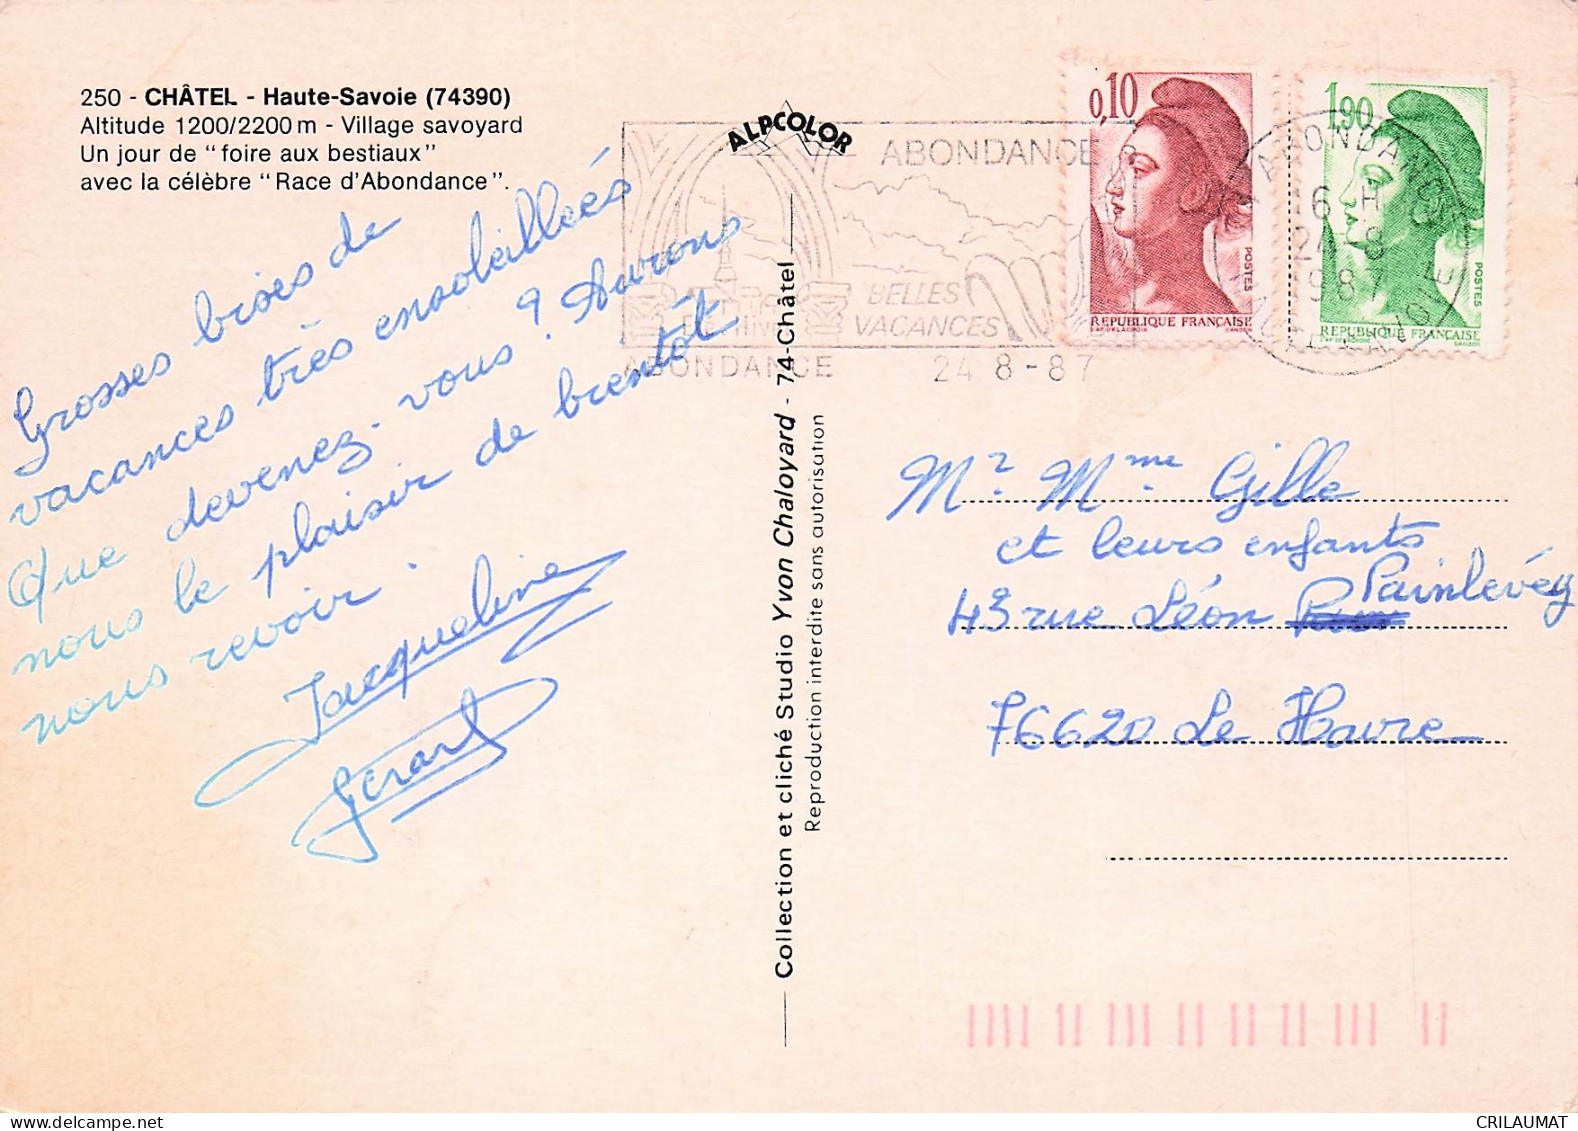 250 - CHÂTEL - Haute-Savoie (74390)
Altitude 1200/2200 m - Village savoyard
Un jour de "foire aux bestiaux"
avec la célèbre "Race d'Abondance".
ALPCOLOR
Grosses bises de
vacances très ensoleillées
Que devenez-vous ? Aurons
nous le plaisir de bientôt
nous revoir.
Jacqueline
Gérard
Collection et cliché Studio Yvon Chaloyard - 74-Châtel
Reproduction interdite sans autorisation
ABONDANCE
BELLES
VACANCES
ABONDANCE 24 8-87
0,10
POSTES
REPUBLIQUE FRANÇAISE
1,90
POSTES
REPUBLIQUE FRANÇAISE
ABONDANCE
16 H
24 8
1987
Mr. Mme Gille
et leurs enfants
43 rue Léon Painlevéy
76620 Le Havre
CRILAUMAT